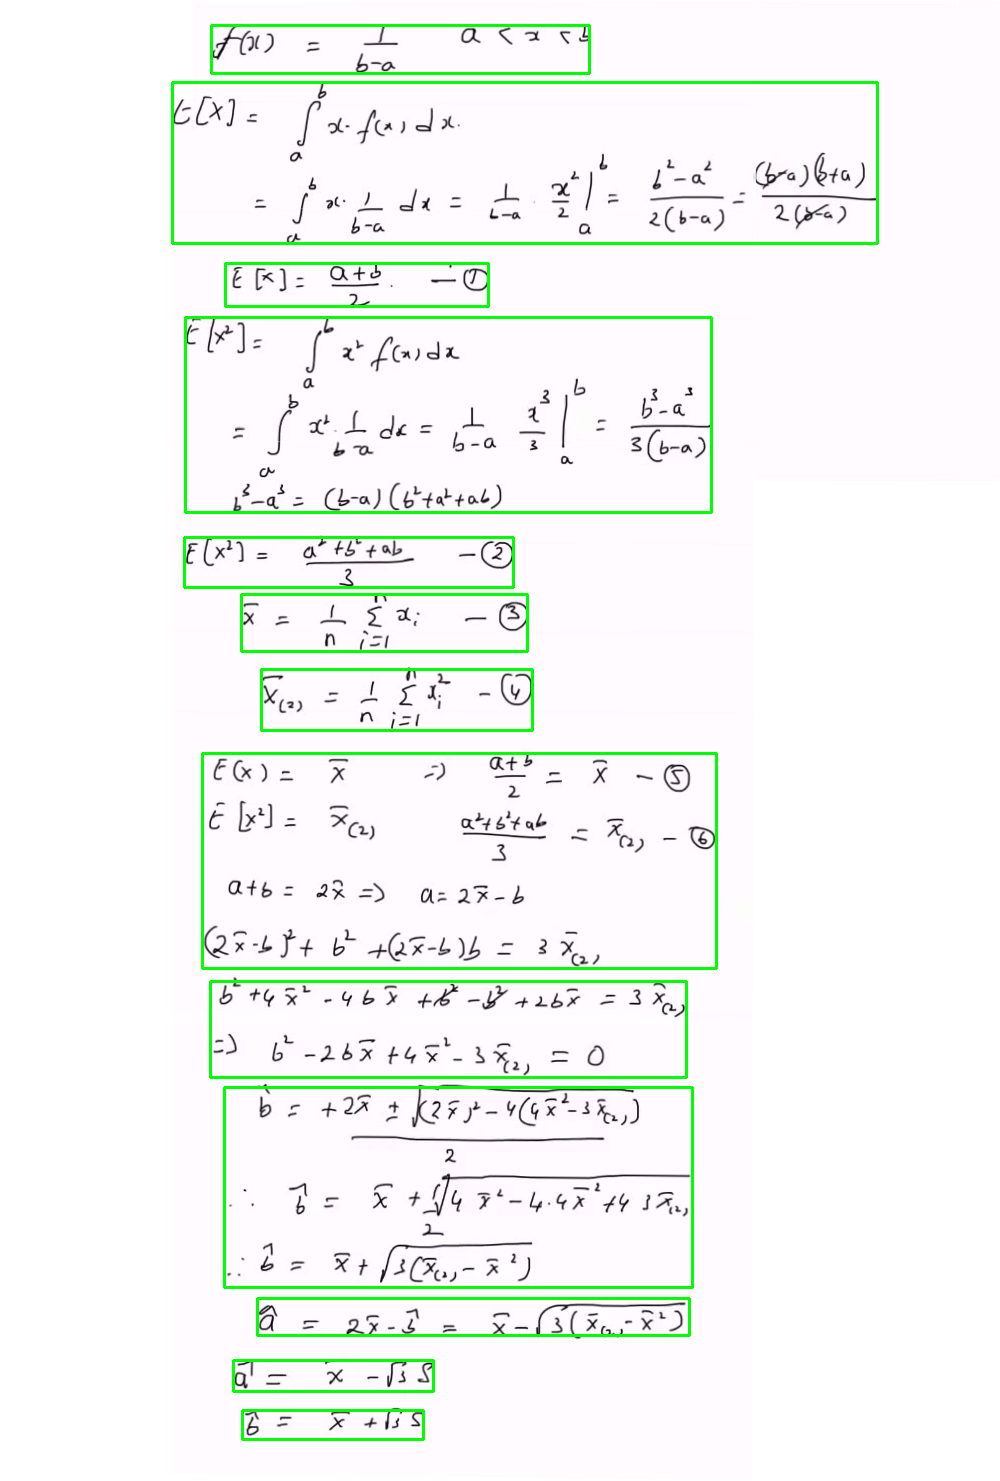 f(x) = 1/(b-a)   a < x < b
E[X] = ∫_a^b x. f(x) dx.
= ∫_a^b x. 1/(b-a) dx = 1/(b-a) . x²/2 |_a^b = (b²-a²)/(2(b-a)) = (b-a)(b+a)/(2(b-a))
E[X] = (a+b)/2 . — ①
E[X²] = ∫_a^b x² f(x) dx
= ∫_a^b x². 1/(b-a) dx = 1/(b-a) x³/3 |_a^b = (b³-a³)/(3(b-a))
b³-a³ = (b-a)(b²+a²+ab)
E[X²] = (a²+b²+ab)/3 — ②
x̄ = 1/n Σ_{i=1}^n x_i — ③
x̄_(2) = 1/n Σ_{i=1}^n x_i² — ④
E(x) = x̄ => (a+b)/2 = x̄ — ⑤
E[x²] = x̄_(2)   (a²+b²+ab)/3 = x̄_(2) — ⑥
a+b = 2x̄ => a = 2x̄-b
(2x̄-b)² + b² +(2x̄-b)b = 3 x̄_(2)
b² +4x̄² - 4bx̄ +b² -b² +2bx̄ = 3 x̄_(2)
=> b² -2bx̄ +4x̄² - 3x̄_(2) = 0
b̂ = (+2x̄ ± √((2x̄)² - 4(4x̄²-3x̄_(2))))/2
∴ b̂ = x̄ + √(4x̄² - 4.4x̄² +4 3x̄_(2))/2
∴ b̂ = x̄ + √(3(x̄_(2) - x̄²))
â = 2x̄ - b̂ = x̄ - √(3(x̄_(2) - x̄²))
â = x̄ - √3 S
b̂ = x̄ + √3 S